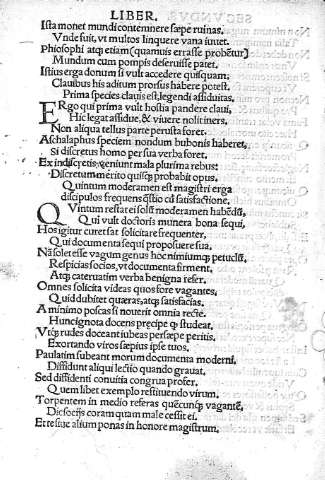 LIBER.
Ista monet mundi contemnere sæpe ruinas.
Vnde fuit, vt multos linquere vana iuuet.
Phiosophi atq etiam [quamuis errasse probētur]
Mundum cum pompis deseruisse patet.
Istius erga donum si vult accedere quisquam,
Clauibus his aditum prorsus habere potest.
Prima species clauis est, legendi assiduitas.
ERgo qui prima vult hostia pandere claui,
Hic legat assidue, & viuere nolit iners,
Non aliqua tellus parte perusta foret.
Aschalaphus speciem nondum bubonis haberet,
Si discretus homo per sua verba foret.
Ex indiscretis, veniunt mala plurima rebus:
Discretum merito quisq; probabit opus.
Quintum moderamen est magistri erga
discipulos frequens q̄stio cū satisfactione,
QVintum restat ei solū moderamen habēdū,
Qui vult doctoris munera bona sequi,
Hos igitur curet sat solicitare frequenter,
Qui documenta sequi proposuere sua,
Nā solet esse vagum genus hoc nimiumq; petuclū.
Respicias socios, vt documenta firment,
Atq; cateruatim verba benigna refer.
Omnes solicita videas quos fore vagantes,
Quid dubitet quæras, atq; satisfacias.
A minimo poscas si nouerit omnia recte.
Hunc ignota docens prȩcipe q̄ studeat,
Vtq; rudes doceant iubeas persæpe peritis.
Exortando viros sæpius ipse tuos.
Paulatim subeant morum documenta moderni,
Diffidunt aliqui lectio quando grauat.
Sed diffidenti conuitia congrua profer.
Quem libet exemplo restituendo virum.
Torpentem in medio referas quēcunq; vagantē,
Dic socijs coram quam male cessit ei.
Et resluc alium ponas in honore magistrum.